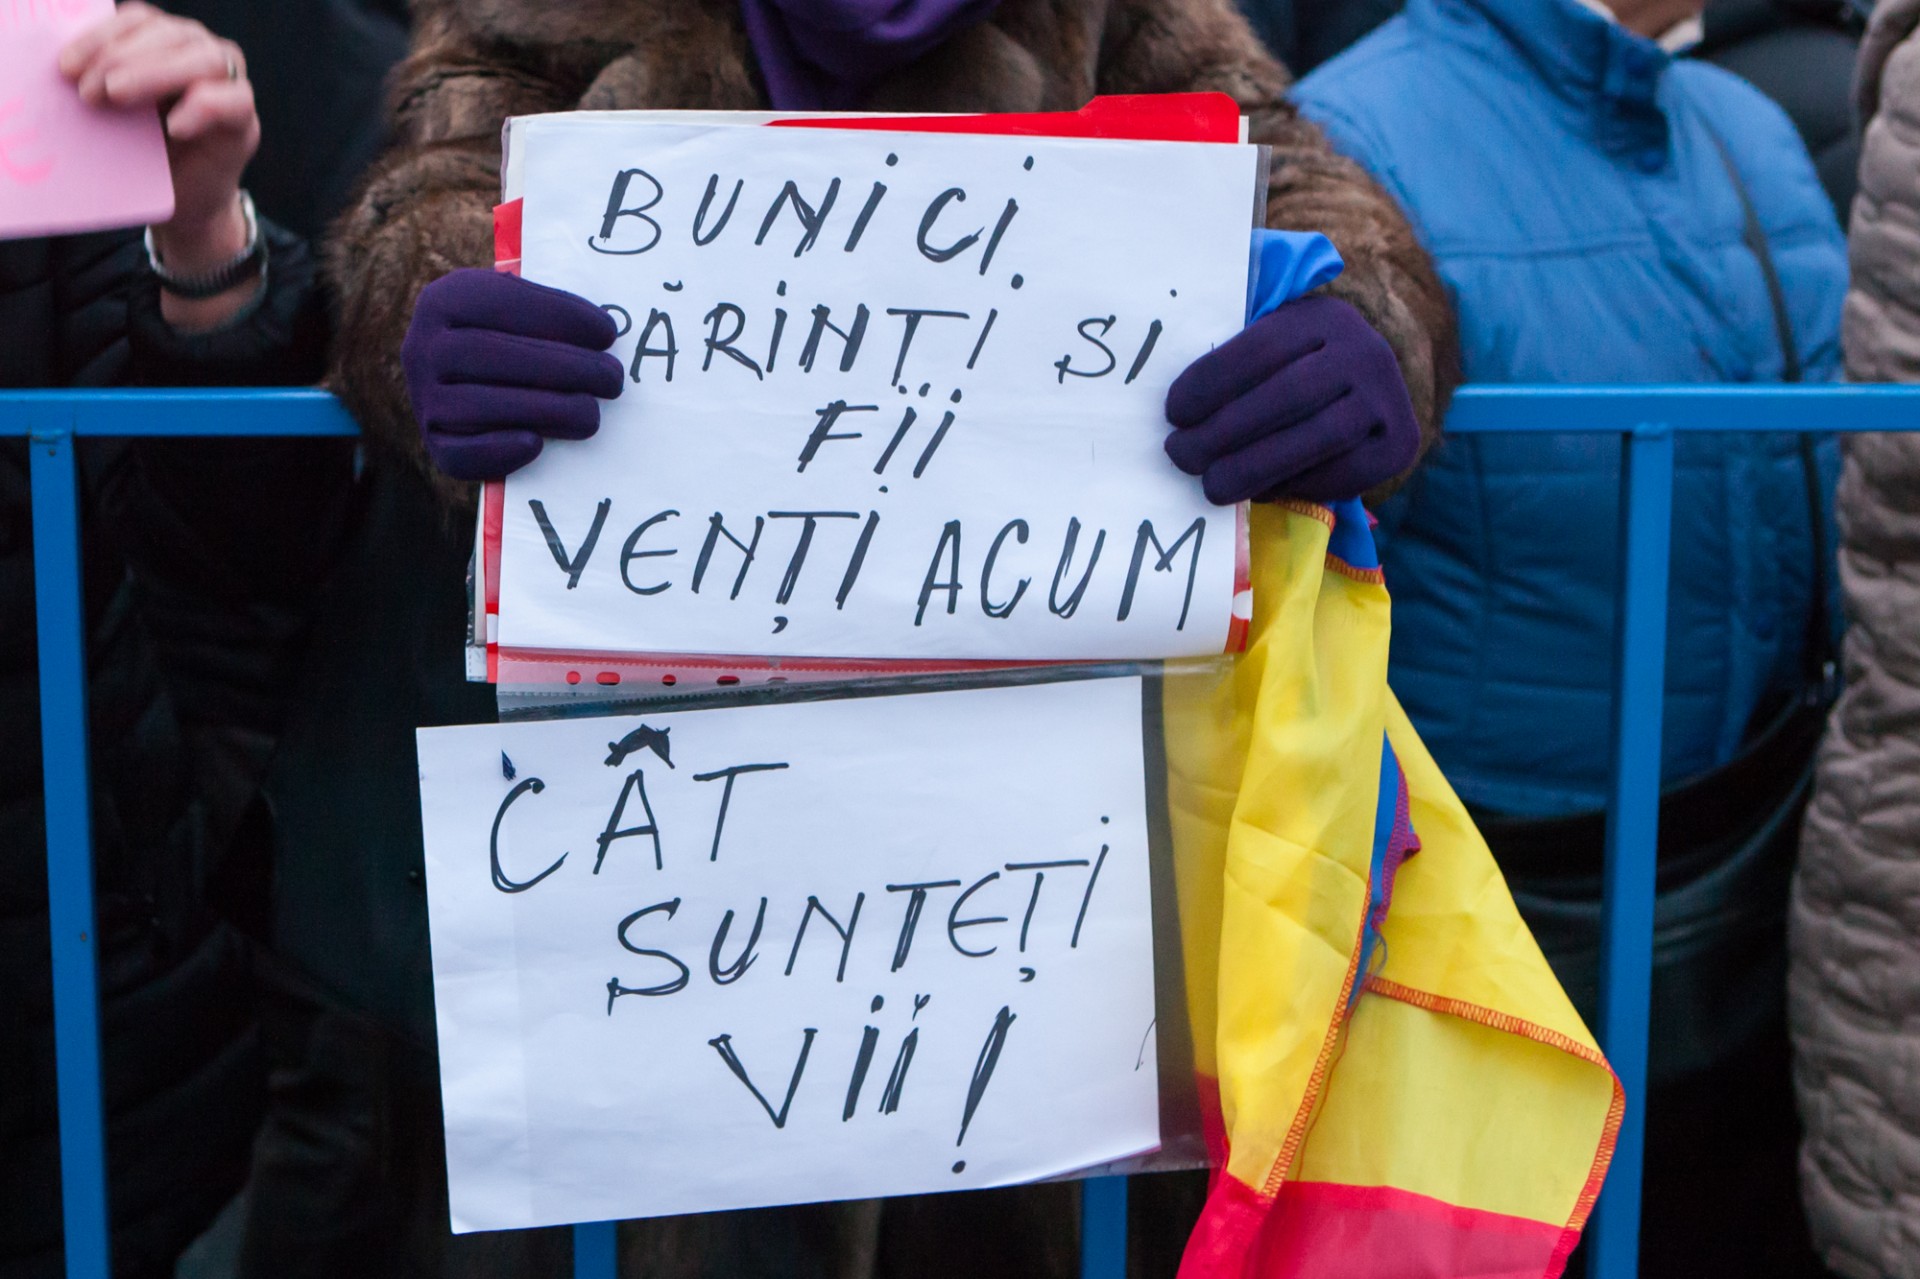 BUNICI.
PĂRINȚI SI
FII
VENȚI ACUM
CÂT
SUNTEȚI
VII!